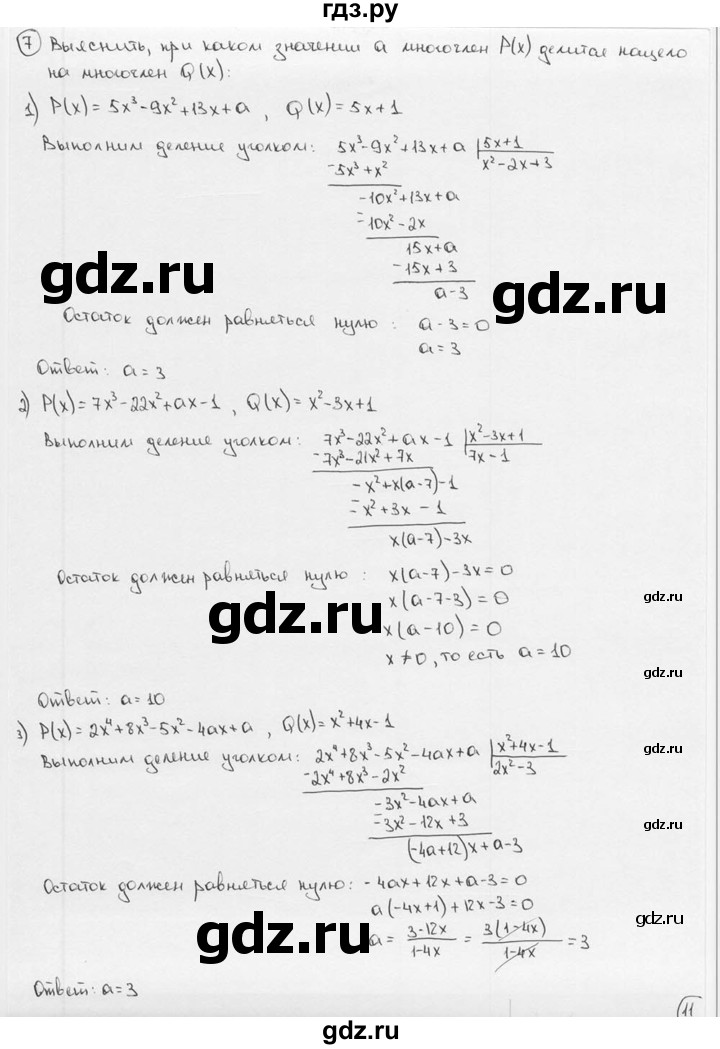 гдз.ру
7 Выяснить, при каком значении a многочлен P(x) делится нацело
на многочлен Q(x):
1) P(x) = 5x³-9x²+13x+a, Q(x) = 5x+1
Выполним деление уголком: 5x³-9x²+13x+a | 5x+1
-5x³+x² x²-2x+3
-10x²+13x+a
-10x²-2x
15x+a
-15x+3
a-3
gdz.ru
gdz.ru
Остаток должен равняться нулю: a-3=0
a=3
Ответ: a=3
2) P(x)=7x³-22x²+ax-1, Q(x)=x²-3x+1
Выполним деление уголком: 7x³-22x²+ax-1 | x²-3x+1
-7x³-21x²+7x 7x-1
-x²+x(a-7)-1
-x²+3x-1
x(a-7)-3x
Остаток должен равняться нулю: x(a-7)-3x=0
gdz.ru
x(a-7-3)=0
gdz.ru
x(a-10)=0
x≠0, то есть a=10
gdz.ru
Ответ: a=10
3) P(x)=2x⁴+8x³-5x²-4ax+a, Q(x)=x²+4x-1
gdz.ru
Выполним деление уголком: 2x⁴+8x³-5x²-4ax+a | x²+4x-1
-2x⁴+8x³-2x² 2x²-3
-3x²-4ax+a
-3x²-12x+3
gdz.ru
(-4a+12)x+a-3
Остаток должен равняться нулю: -4ax+12x+a-3=0
a(-4x+1)+12x-3=0
gdz.ru
gdz.ru
a = 3-12x / 1-4x = 3(1-4x) / 1-4x = 3
Ответ: a=3
11
gdz.ru